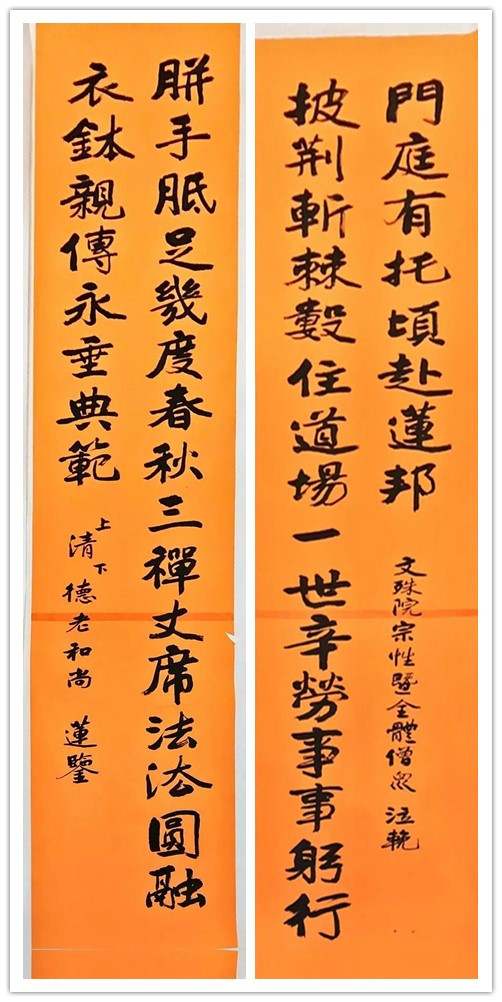 胼手胝足幾度春秋三禪丈席法法圓融
衣鉢親傳永垂典範
上清下德老和尚 蓮鑒
披荆斬棘數住道場一世辛勞事事躬行
門庭有托頃赴蓮邦
文殊院宗性暨全體僧眾 泣輓